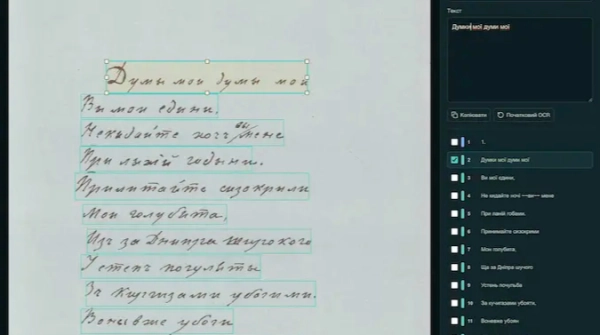 Думы мои думы мои
Вы мои едины.
Некыдайте хочъ вы мене
При лыхій годыни.
Прилитайте сизокрили
Мои голубята,
Изъ за Днипра широкого
У степъ погуляты
Зъ Киргизами убогими.
Воны вже убоги
Текст
мої думи мої
Копіювати
Початковий OCR
1 1.
2 Думки мої думи мої
3 Ви мої єдини,
4 Не кидайте хочі ~~ви~~ мене
5 При лихій годыни.
6 Принимайте сизокрими
7 Мои голубята,
8 Ще за Дніпра шучого
9 Устень почульба
10 За кучипками убояти,
11 Вонивже убояти